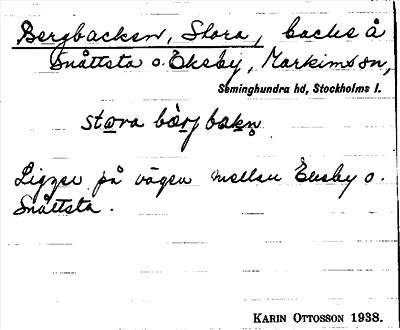 Bergbacken, Stora, backe å
Snåttsta o. Eksby, Markims sn,
Seminghundra hd, Stockholms l.
stora bärjbakn
Ligger på vägen mellan Eksby o.
Snåttsta.
KARIN OTTOSSON 1938.